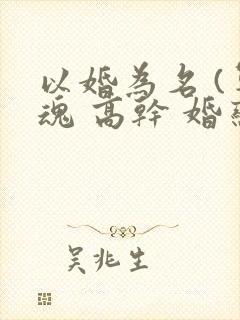 以婚為名(
魂 高幹 婚
吴兆生